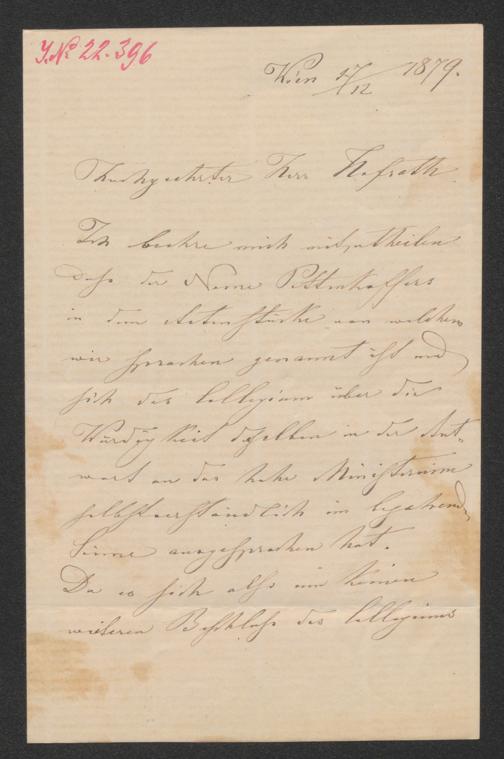 I.N. 22.396
Wien 17/12 1879.
Hochgeehrter Herr Hofrath
Ich beehre mich mitzutheilen
dass der Name Pettenkoffers
in dem Actenstücke von welchem
wir sprachen genannt ist und
sich das Collegium über die
Würdigkeit desselben in der Ant-
wort an das hohe Ministerium
selbstverständlich im bejahenden
Sinne ausgesprochen hat.
Da es sich also um keinen
weiteren Beschluss des Collegiums